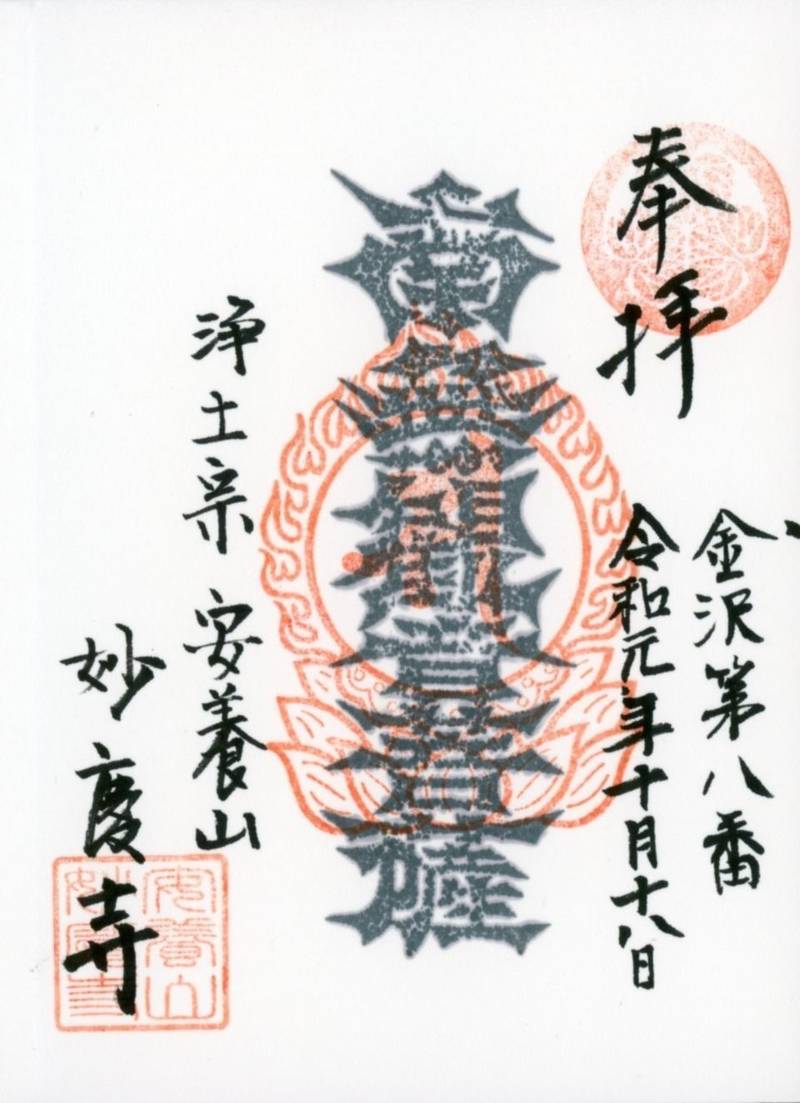 奉拝
金沢第八番
令和元年十月十八日
南無観世音菩薩
浄土宗 安養山
妙慶寺
安養山
妙慶寺